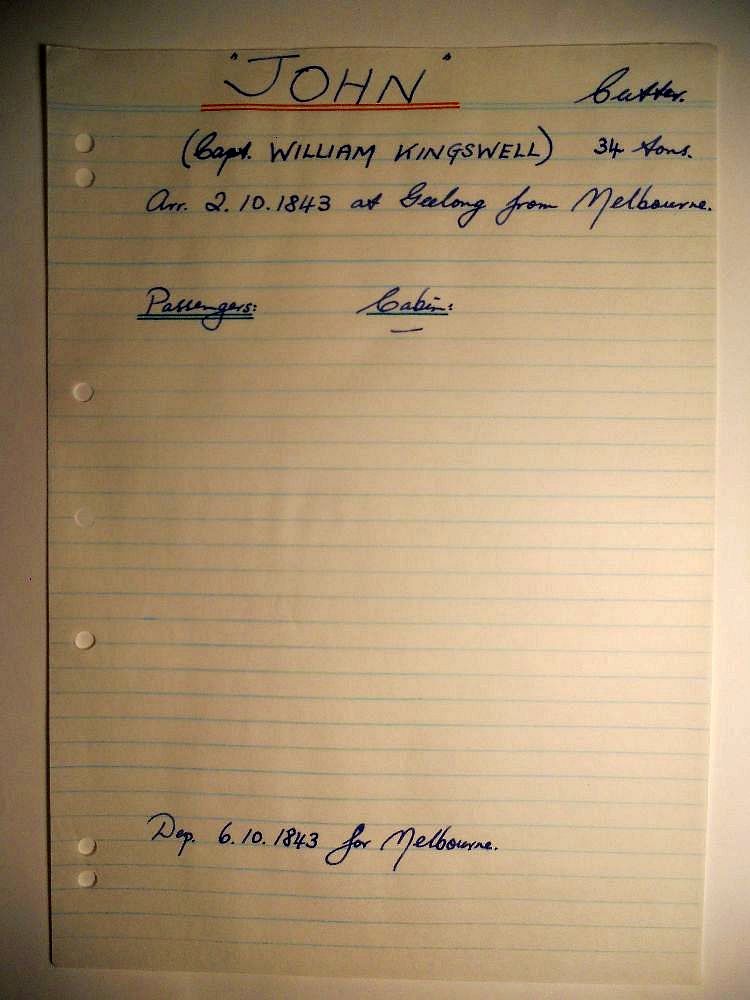 "JOHN" Cutter.
(Capt. WILLIAM KINGSWELL) 34 tons.
Arr. 2.10.1843 at Geelong from Melbourne.
Passengers: Cabin:
—
Dep. 6.10.1843 for Melbourne.